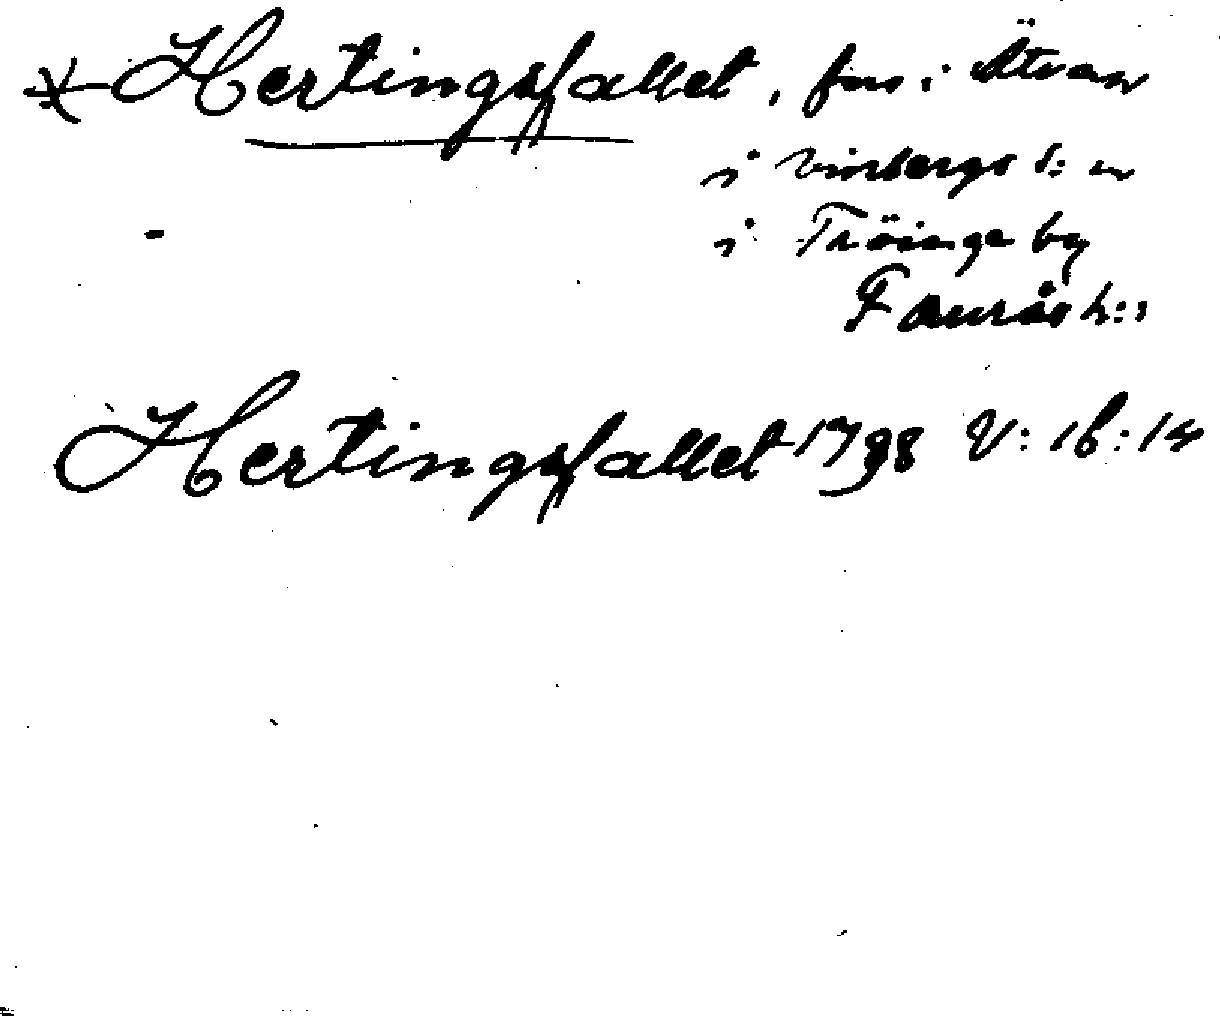 * Hertingsfallet, fors i Ätran
i Vinbergs s:n
i Tröinge by
Faurås h:d
Hertingsfallet 1798 V: 16: 14